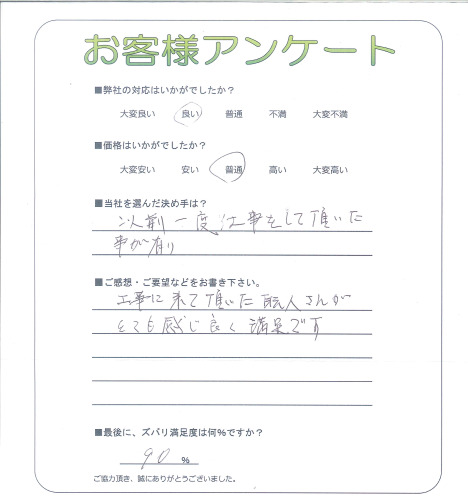 お客様アンケート
■弊社の対応はいかがでしたか？
大変良い 良い 普通 不満 大変不満
■価格はいかがでしたか？
大変安い 安い 普通 高い 大変高い
■当社を選んだ決め手は？
以前一度仕事をして頂いた
事が有り
■ご感想・ご要望などをお書き下さい。
工事に来て頂いた職人さんが
とても感じ良く満足です
■最後に、ズバリ満足度は何%ですか？
90 %
ご協力頂き、誠にありがとうございました。